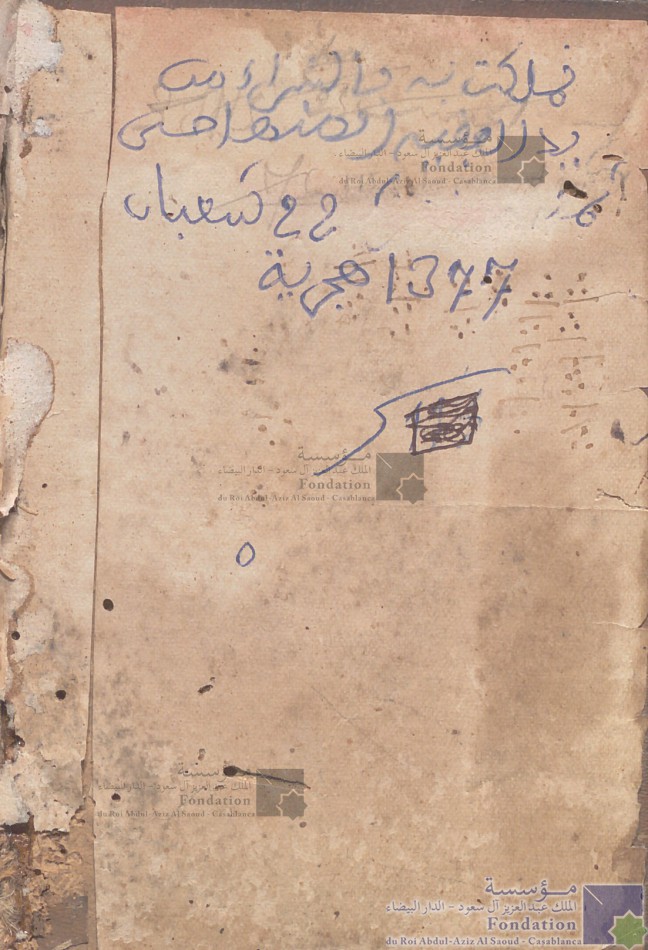 تملكت به بالشراء من
يد الفقيه
22 شعبان
1377 هجرية
مؤسسة
الملك عبد العزيز آل سعود - الدار البيضاء
Fondation
du Roi Abdul-Aziz Al Saoud - Casablanca
مؤسسة
الملك عبد العزيز آل سعود - الدار البيضاء
Fondation
du Roi Abdul-Aziz Al Saoud - Casablanca
مؤسسة
الملك عبد العزيز آل سعود - الدار البيضاء
Fondation
du Roi Abdul-Aziz Al Saoud - Casablanca
مؤسسة
الملك عبد العزيز آل سعود - الدار البيضاء
Fondation
du Roi Abdul-Aziz Al Saoud - Casablanca